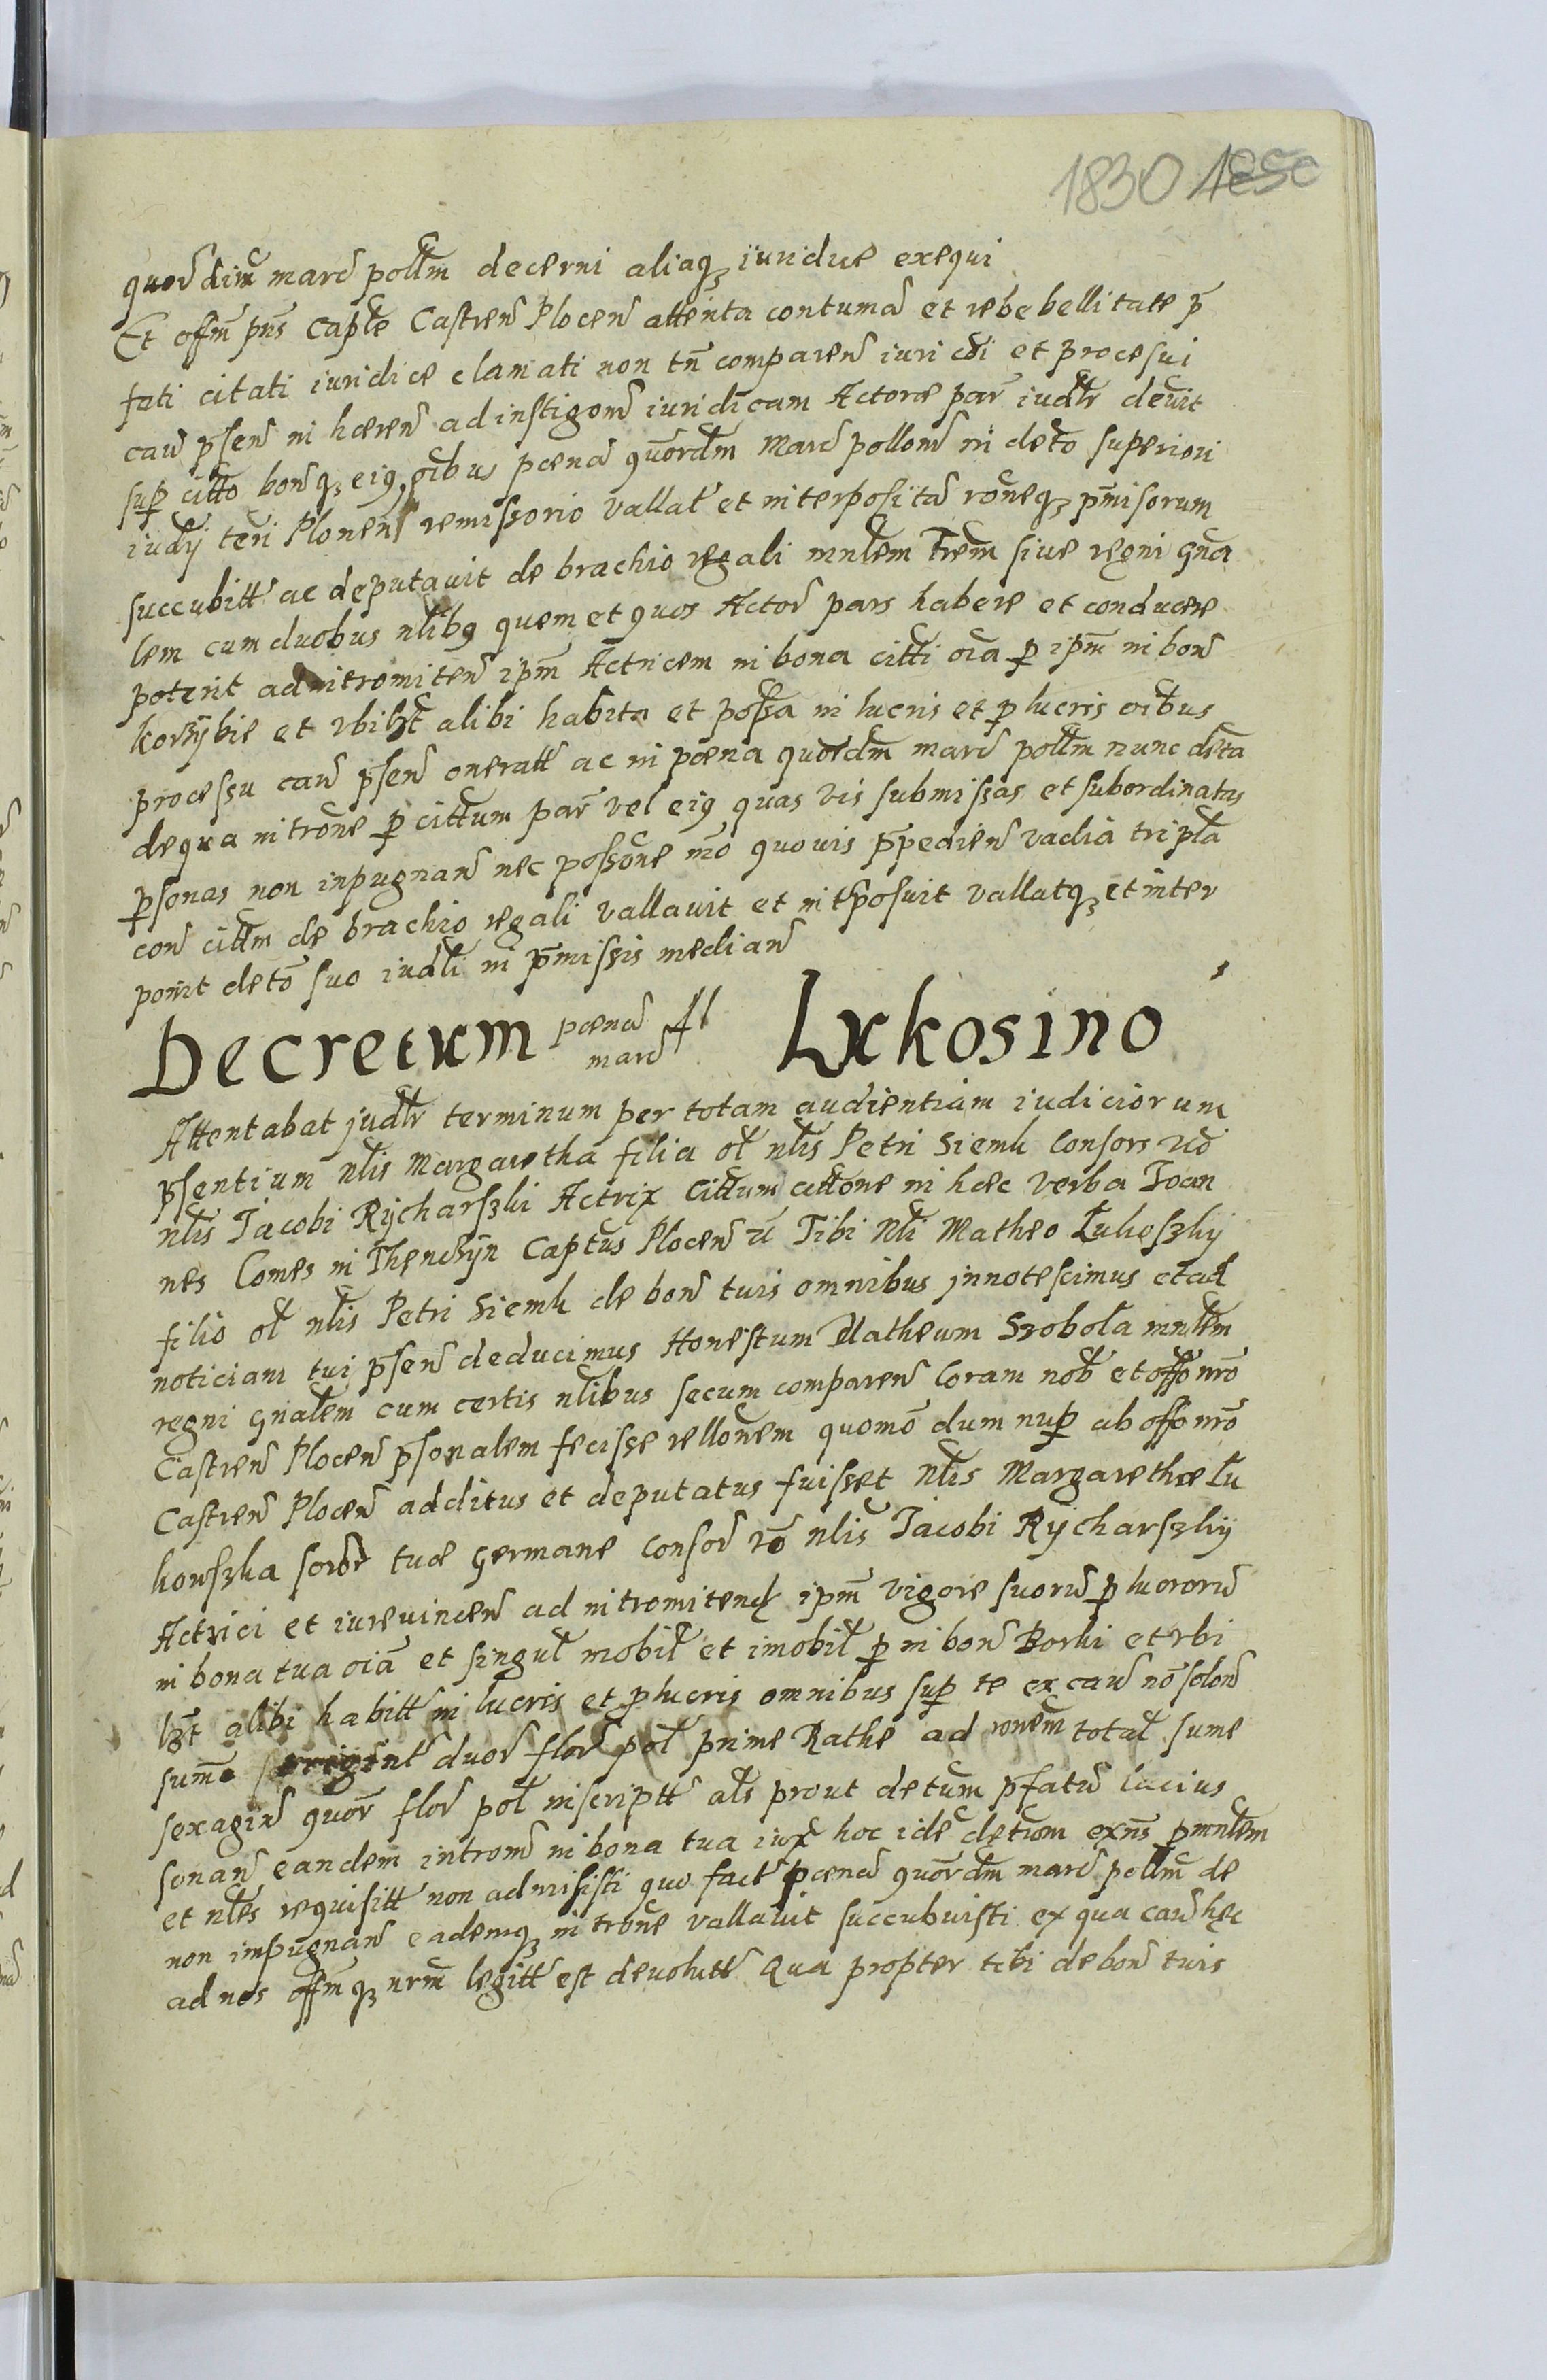 1830 1850
quord dim marc pollm decerni aliaqз iuridice exequi
Et offm pns Captle Castren Plocen attenta contumac et rebebellitate p
fati citati iuridice clamati non tn comparen iuri cdi et procesui
caus psen in haeren ad instigom iuridicam Actoree par iudlr devit
sup citto bonqз eiq oibus poena quordm marc pollom in deto superiori
iudy teri Plonens remissorio vallat et interposita roneqз pmisorum
succubitt ac deputavit de brachio regali mnlem Trem sive regni gna
lem cum duobus nlibq quem et quos Actor pars habere et conducere
poterit ad intromiten ipm Actricem in bona citti oia p ipm in bon
korzybie et vbilзt alibi habita et possa in lucris et p lucris oibus
processu caus psen oneratt ac in poena quordm marc pollm nunc deta
de qua introne p cittum par vel eiq quas vis submissas et subordinatas
psonas non inpugnan nec possone mo quovis ppedien vadia tripla
con cittm de brachio regali vallavit et intposuit vallatqз et inter
ponit deto suo iudli in pmissis median
Decretum poena marc Al Lukosino
Attentabat judlr terminum per totam audientiam iudiciorum
psentium nlis Margaretha filia ol nlis Petri Siemk Consors vo
nlis Jacobi Rycharszki Actrix Cittum cittone in haec verba Joan
nes Comes in Thenczyn Captus Plocen Tibi Nli Matheo Lukoszky
filio ol nlis Petri Siemk de bon tuis omnibus innotescimus et ad
noticiam tui psen deducimus Honestum Matheum Szobola mnlem
regni gnalem cum certis nlibus secum comparen Coram nob et offo nro
Castren Plocen psonalem fecisse rellonem quomo dum nup ab offo nro
Castren Plocen additus et deputatus fuisset Nlis Margarethae Lu
kowszka soror tuae germane consor vo nlis Jacobi Rycharszky
Actrici et iurevincen ad intromitend ipm vigore suoru p lucroru
in bona tua oia et singul mobil et imobil p in bon Borki et vbi
lзt alibi habitt in lucris et p lucris omnibus sup te ex caus no solon
sume duor flor pol prime Rathe ad ronem total sume
sexagin quor flor pol inscriptt als prout detum pfatu lacius
sonan eandem introm in bona tua iux hoc ide detum exns p mnlem
et nles requisitt non admisisti quo fact poena quordm marc pollm de
non impugnan eademqз introne vallavit succubuisti ex qua caus hec
ad nos offmqз nrm legitt est devolutt Qua propter tibi de bon tuis